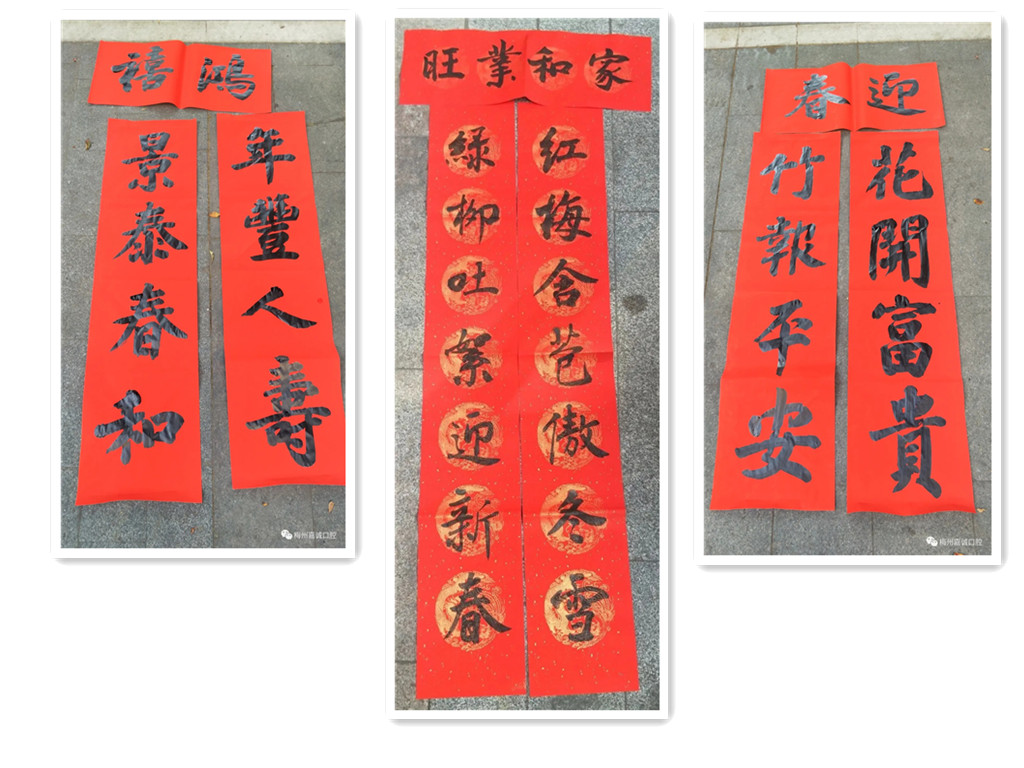 鴻禧
年豐人壽
景泰春和
梅州嘉诚口腔
家和業旺
红梅含苞傲冬雪
綠柳吐絮迎新春
迎春
花開富貴
竹報平安
梅州嘉诚口腔